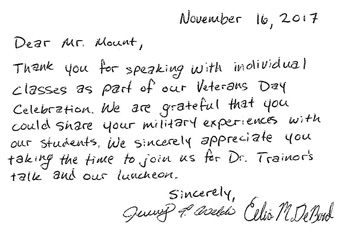 November 16, 2017
Dear Mr. Mount,
Thank you for speaking with individual
classes as part of our Veterans Day
Celebration. We are grateful that you
could share your military experiences with
our students. We sincerely appreciate you
taking the time to join us for Dr. Trainor's
talk and our luncheon.
Sincerely,
Celia M. DeBond